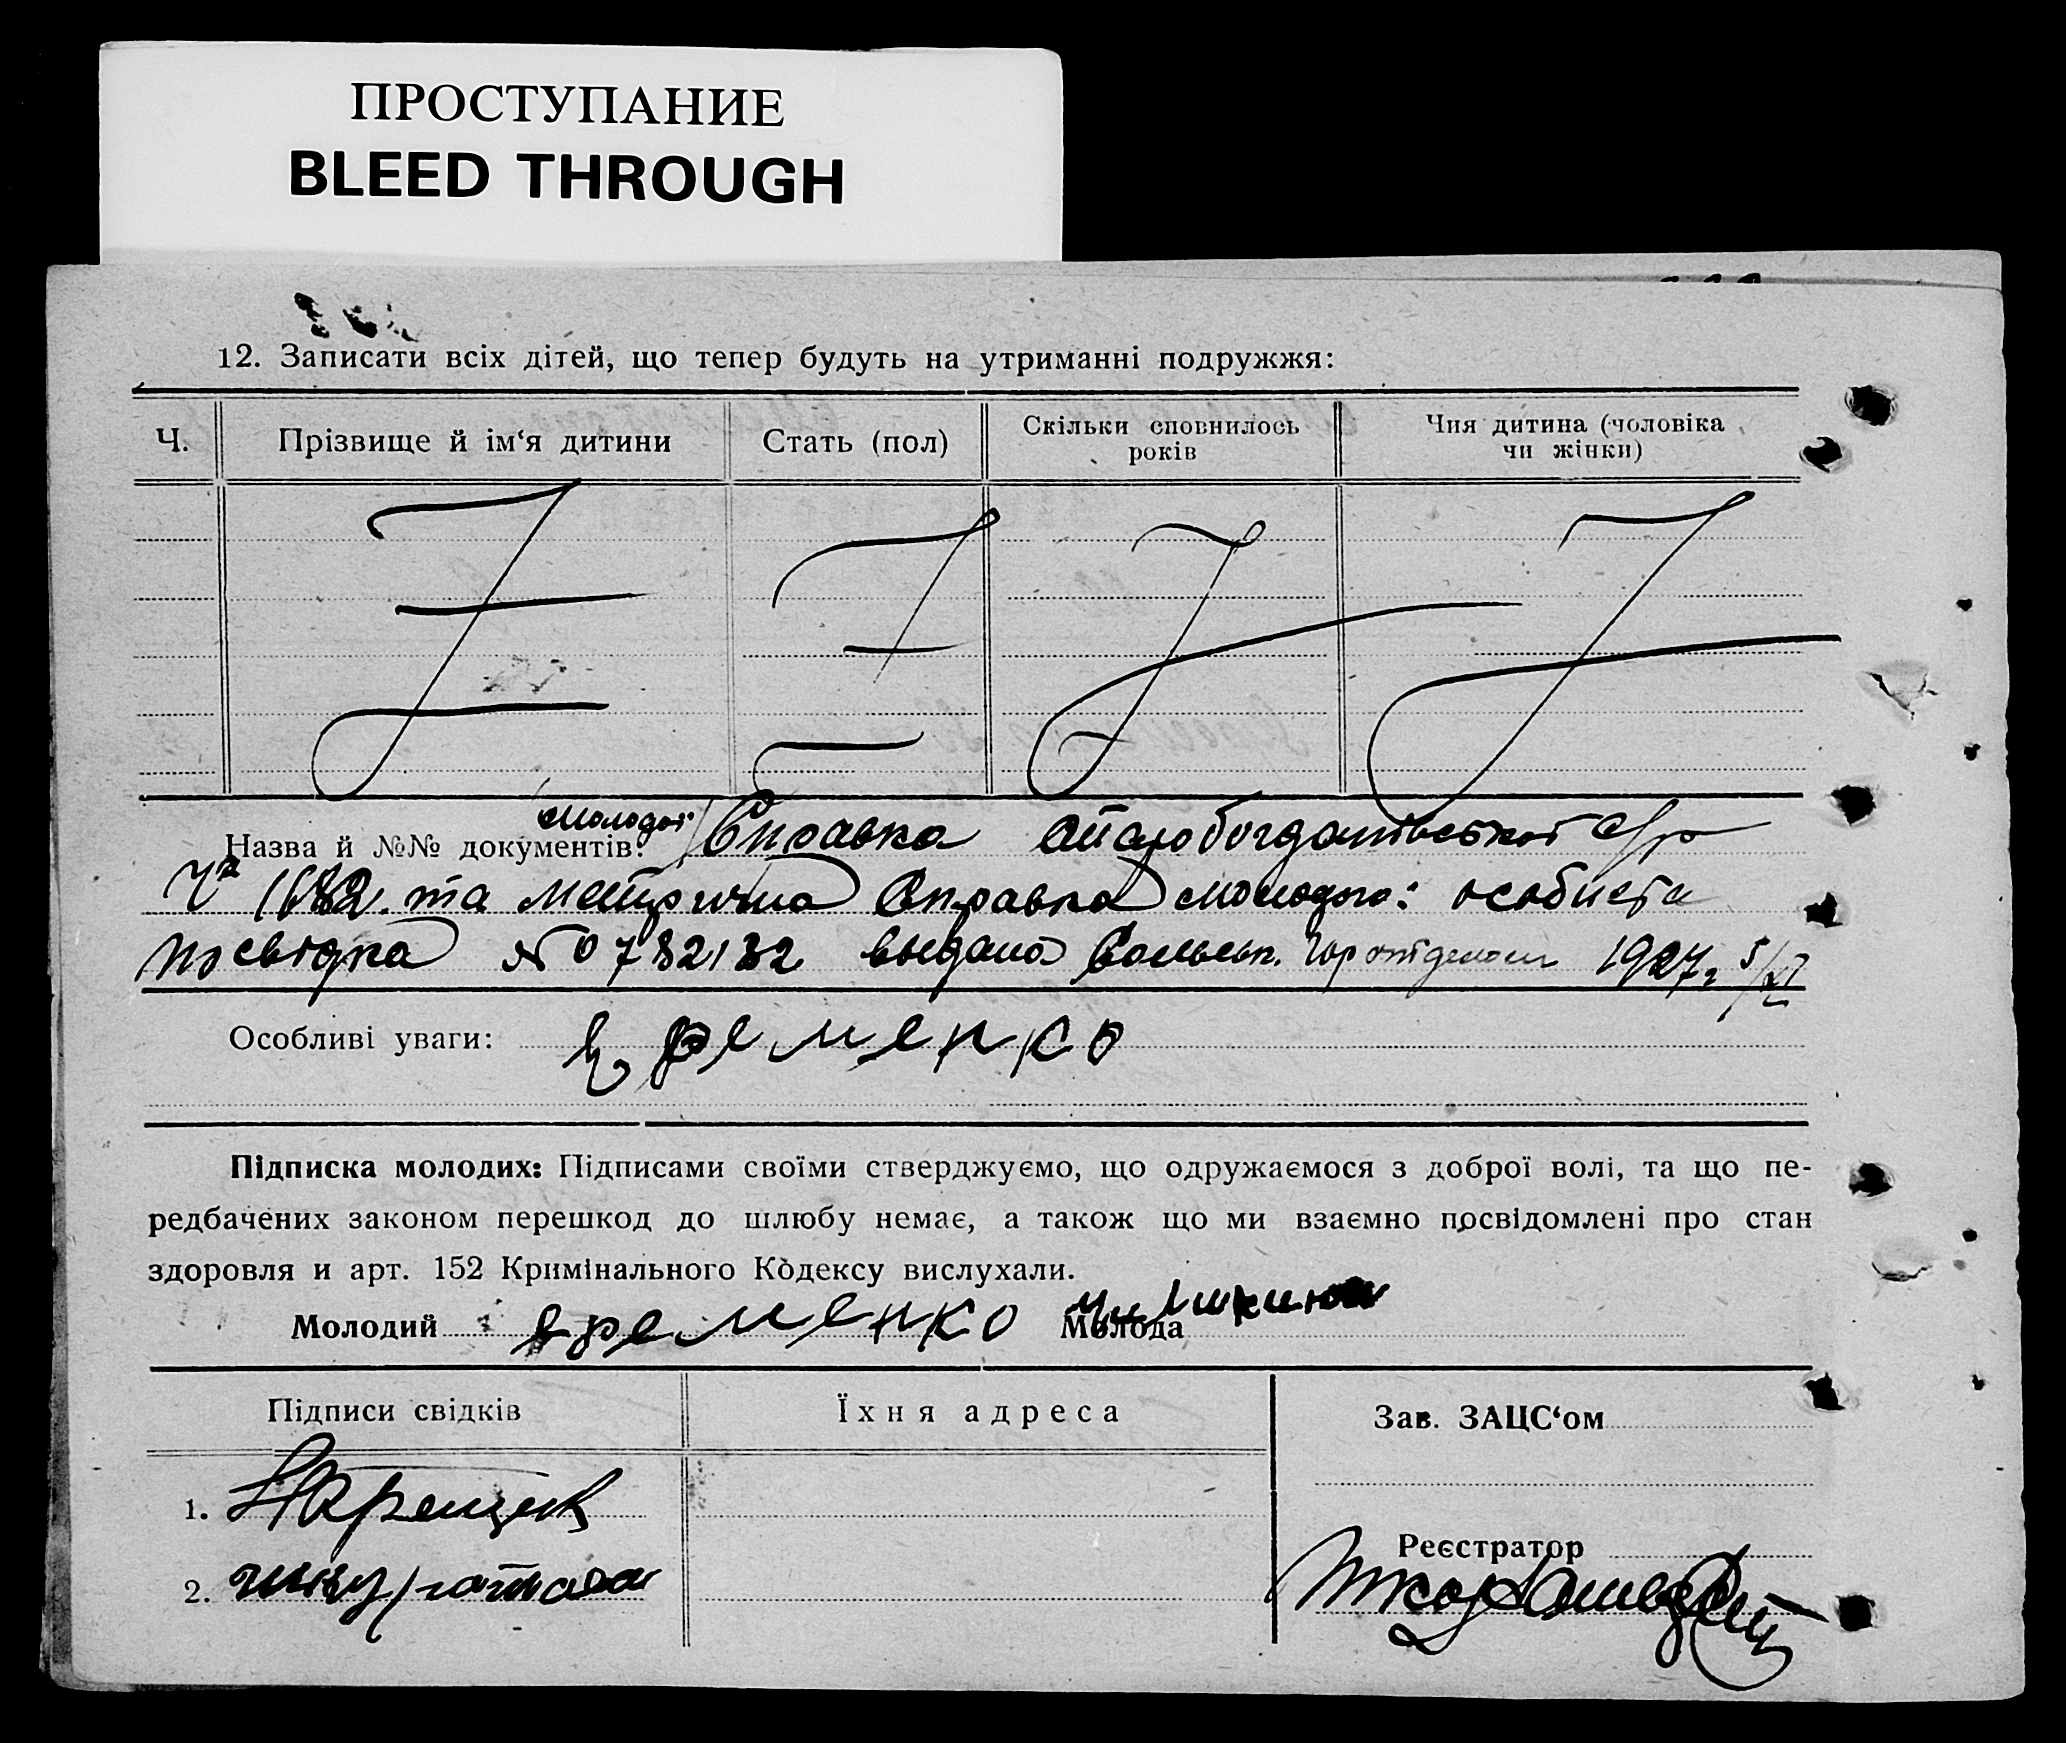 ПРОСТУПАНИЕ
BLEED THROUGH
12. Записати всіх дітей, що тепер будуть на утриманні подружжя:
Ч. Прізвище й ім‘я дитини Стать (пол) Скільки сповнилось років Чия дитина (чоловіка чи жінки)
молодої
Назва й №№ документів: Справка
та метрична Справка молодого: особиста
посвідка № 0782132 выдана 1927г 5/XI
Особливі уваги: Єременко
Підписка молодих: Підписами своїми стверджуємо, що одружаємося з доброї волі, та що пе-
редбачених законом перешкод до шлюбу немає, а також що ми взаємно посвідомлені про стан
здоровля и арт. 152 Кримінального Кодексу вислухали.
Молодий єременко Молода
Підписи свідків Їхня адреса Зав. ЗАЦС‘ом
1.
Реєстратор
2.